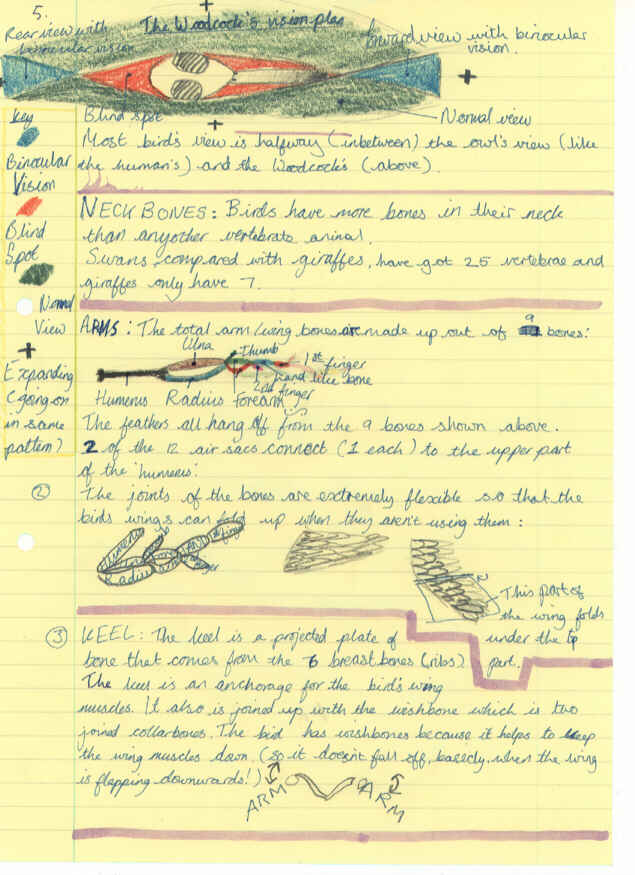 5.
The Woodcock's vision plan
Rear view with binocular vision
Forward view with binocular vision.
Blind spot
Normal view
Key
Binocular Vision
Blind Spot
Normal View
Expanding (going on in same pattern)
Most bird's view is halfway (inbetween) the owl's view (like
the human's) and the Woodcock's (above).
NECK BONES: Birds have more bones in their neck
than anyother vertebrate animal.
Swans, compared with giraffes, have got 25 vertebrae and
giraffes only have 7.
ARMS: The total arm/wing bones are made up out of 9 bones:
Ulna
Thumb
1st finger
hand like bone
2nd finger
Humerus Radius Forearm
The feathers all hang off from the 9 bones shown above.
2 of the 12 air sacs connect (1 each) to the upper part
of the 'humerus'.
2
The joints of the bones are extremely flexible so that the
birds wings can fold up when they aren't using them:
Humerus
Radius
This part of
the wing folds
under the top
part.
3
KEEL: The keel is a projected plate of
bone that comes from the 6 breast bones (ribs).
The keel is an anchorage for the bird's wing
muscles. It also is joined up with the wishbone which is two
joined collarbones. The bird has wishbones because it helps to keep
the wing muscles down. (so it doesn't fall off, basicly, when the wing
is flapping downwards!)
ARM
ARM